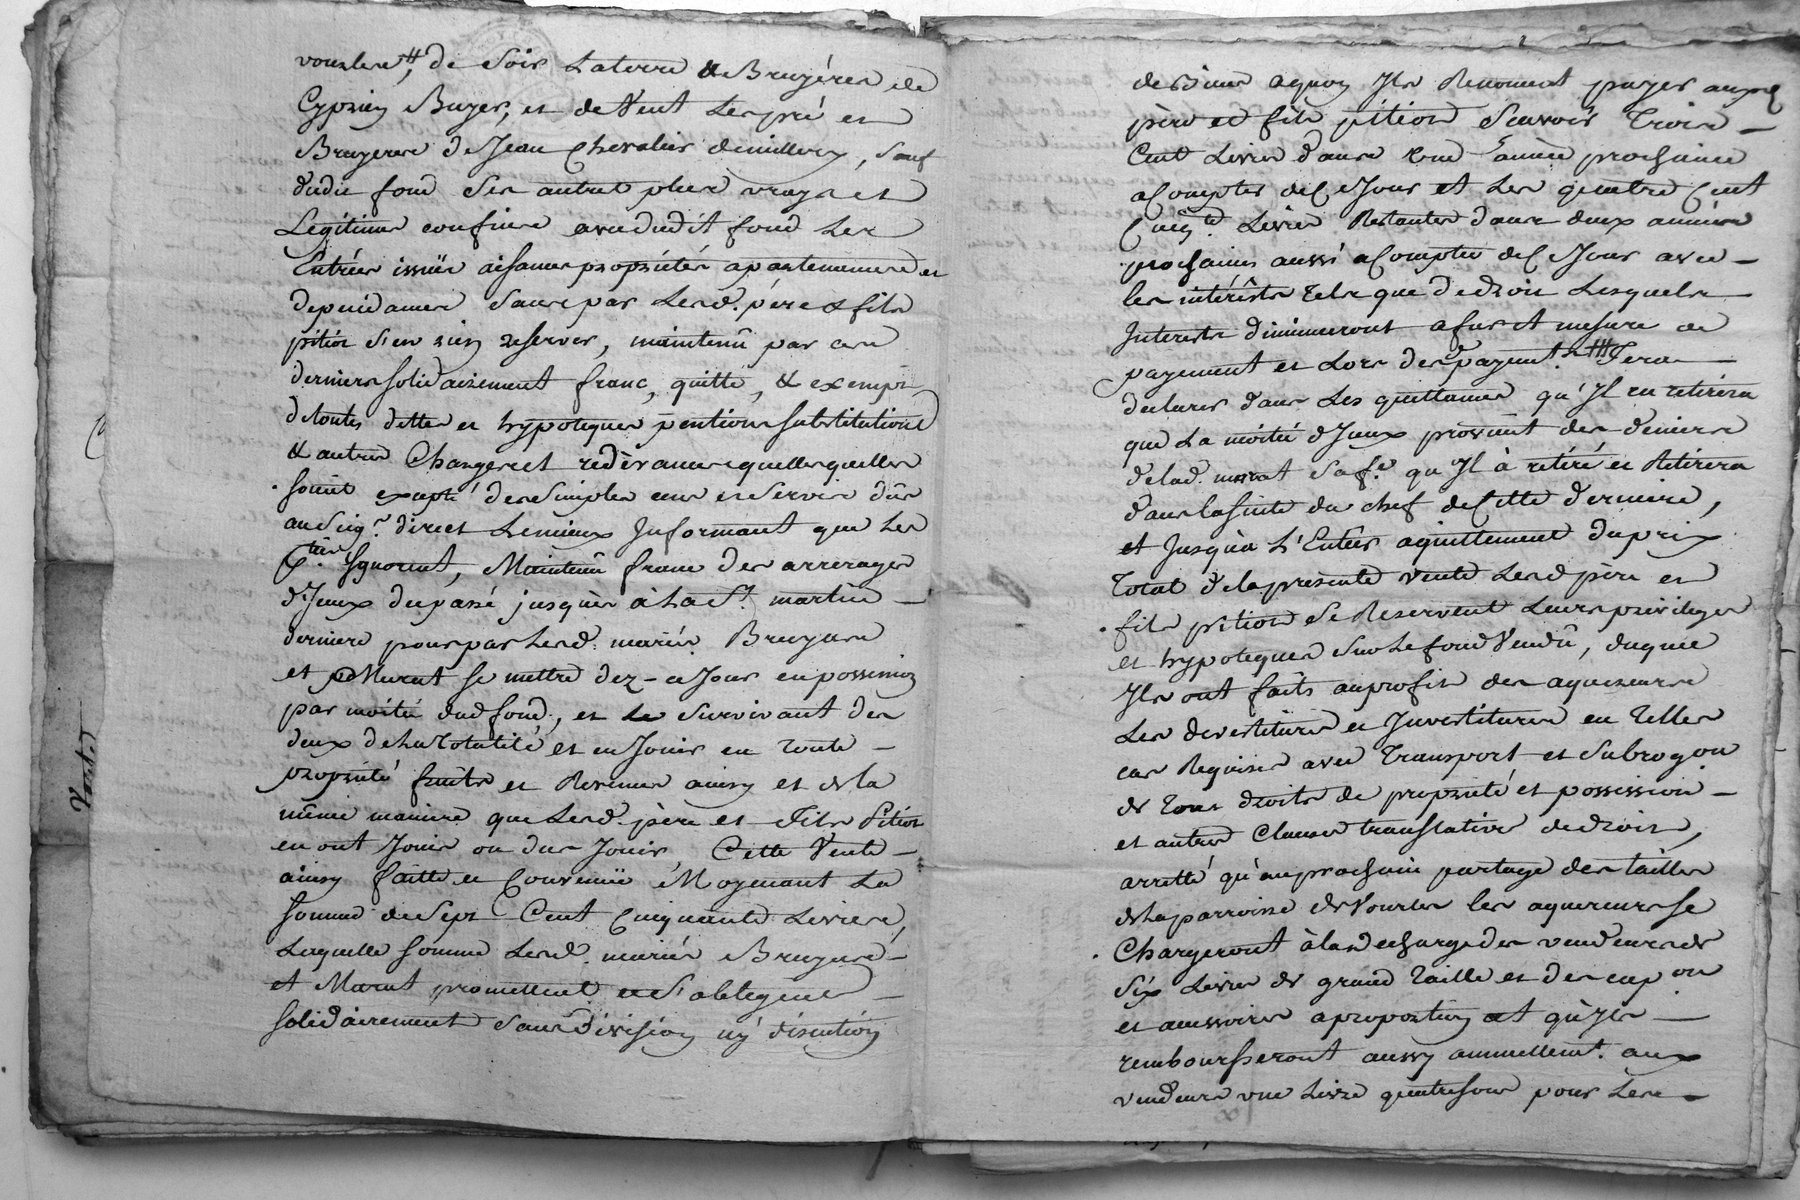 vourles #, de Soir La terre & Bruyéres de
Cyprien Buyer, et de Vent Les pré et
Bruyeres de Jean Chevalier de millery, Sauf
dudit fond Ses autres plus vrays et
Legitimes confins avec dudit fond Ses
Entrées issües aisances proprietés apartenances et
dependances Sans par Lesd. père & fils
pitiot S'en rien reserver, maintenû par ces
derniers solidairement franc, quitte, & exempt
de toutes dettes et hypoteques pentions substitutions
& autres Charges et redèvances quelles quelles
soient excepté des Simples cens et Servis dûs
au Seigr. direct Le mieux Informant que Les
Pties. Ignorent, Maintenû franc des arrerages
d'Jceux du passé jusques à La St. martin
derniere pour par Lesd. mariés Bruyas
et Murat se mettre dez-ce Jour en possession
par moitié dud fond, et Le Survivant des
deux de La totalité et en Jouir en toute
proprieté fruits et Revenus ainsy et de la
même maniere que Lesd. père et Fils Pitiot
en ont Joui ou dus Jouir Cette Vente
ainsy faitte et Convenüe Moyenant La
somme de Sept Cent Cinquante Livres,
Laquelle somme Lesd. mariés Bruyas
et Murat promettent et S'obligent
solidairement Sans division ny discution
de Biens aquoy Jls Renoncent payer auxd
père et fils pitiot Scavoir Trois
Cent Livres dans une année prochaine
a Compter de Ce Jour et Les quatre Cent
Cinqte. Livres Restantes dans deux années
prochaines aussi a Compter de Ce Jour avec
les intérêsts Tels que de droit Lesquels
Interests diminueront a fur et mesure de
payement et Lors desd payemts. ### Sera
declarer dans Les quittances qu'Jl en retirera
que La moitié d'Jceux provient des deniers
de lad. murat Sa fe. qu'Jl à retiré et Retirera
dans la suite du chef de Cette derniere,
et Jusqu'a L'Entier aquittement du prix
Total de la presente vente Lesd père et
fils pitiot Se Reservent Leurs privileges
et hypoteques Sur Le fond Vendû, duquel
Jls ont faits au profit des aquereurs
Les devestitures et Jnvestitures en Telles
cas Requises avec Transport et Subrogaon
de Tous droits de proprieté et possession
et autres Clauses translatives de droit,
arretté qu'au prochain partage des tailles
de la parroisse de Vourles les aquereurs se
Chargeront à la decharge des vendeurs de
Six Livres de grand Taille et des capon
et accessoires a proportion et qu'Jls
rembourseront aussy annuellemt. aux
vendeurs une Livre quatre sous pour Les